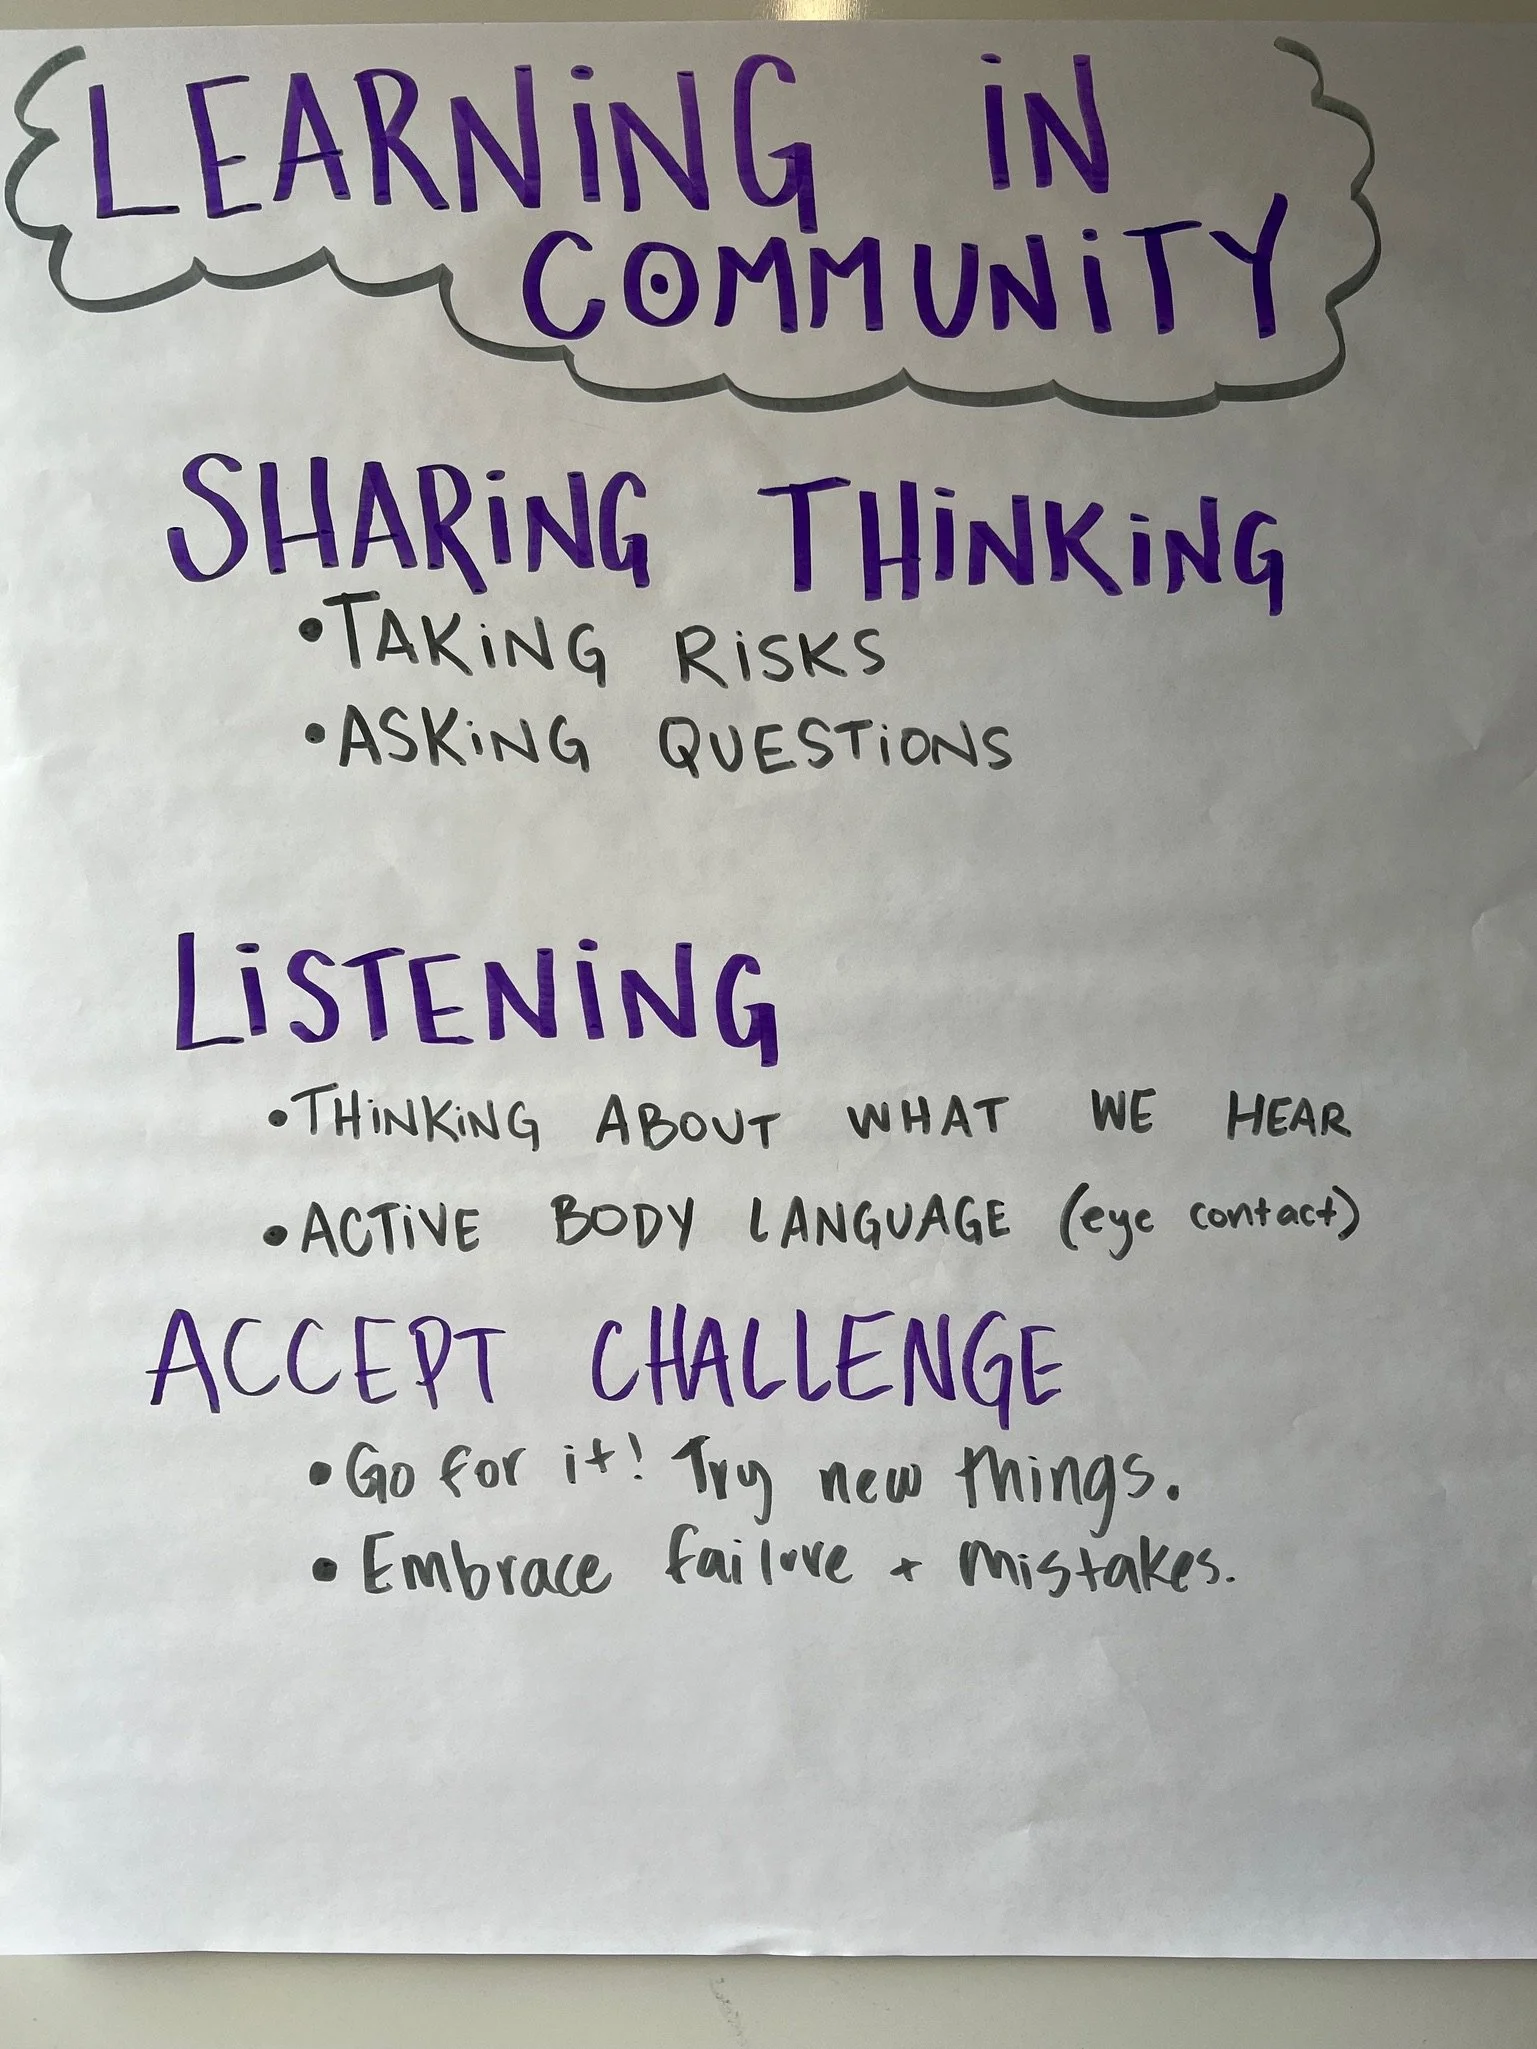 LEARNiNG iN
COMMUNiTY
SHARiNG THiNKiNG
•TAKiNG RiSKS
•ASKiNG QUESTiONS
LiSTENiNG
•THiNKiNG ABOUT WHAT WE HEAR
•ACTiVE BODY LANGUAGE (eye contact)
ACCEPT CHALLENGE
•Go for it! Try new things.
•Embrace failure + mistakes.